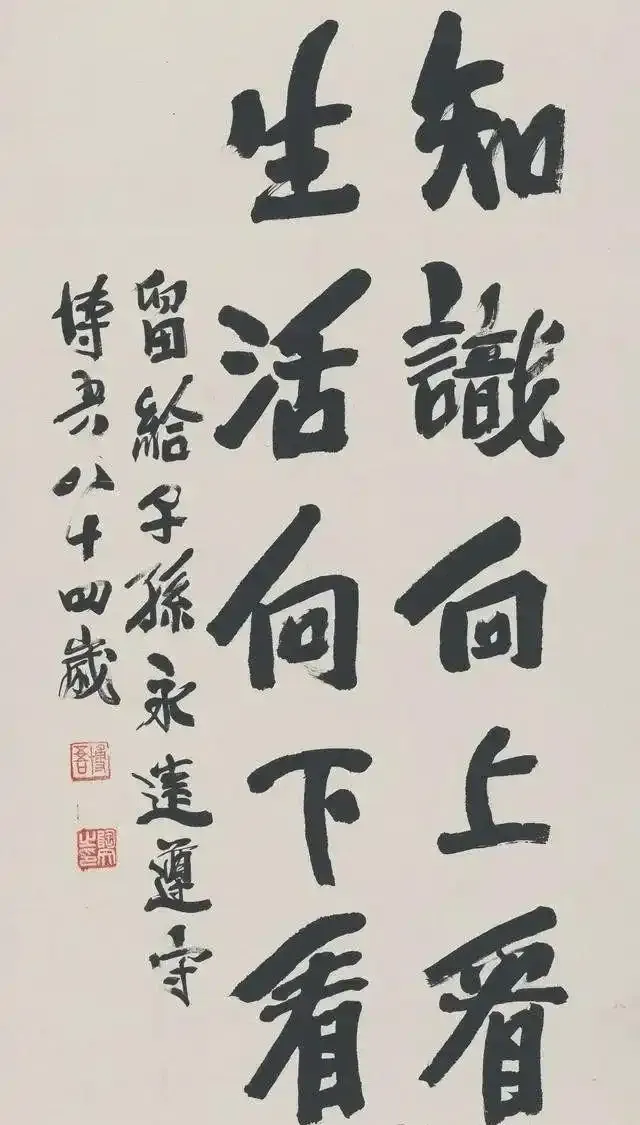 知識向上看
生活向下看
留給子孫永遠遵守
博吾八十四歲
博吾